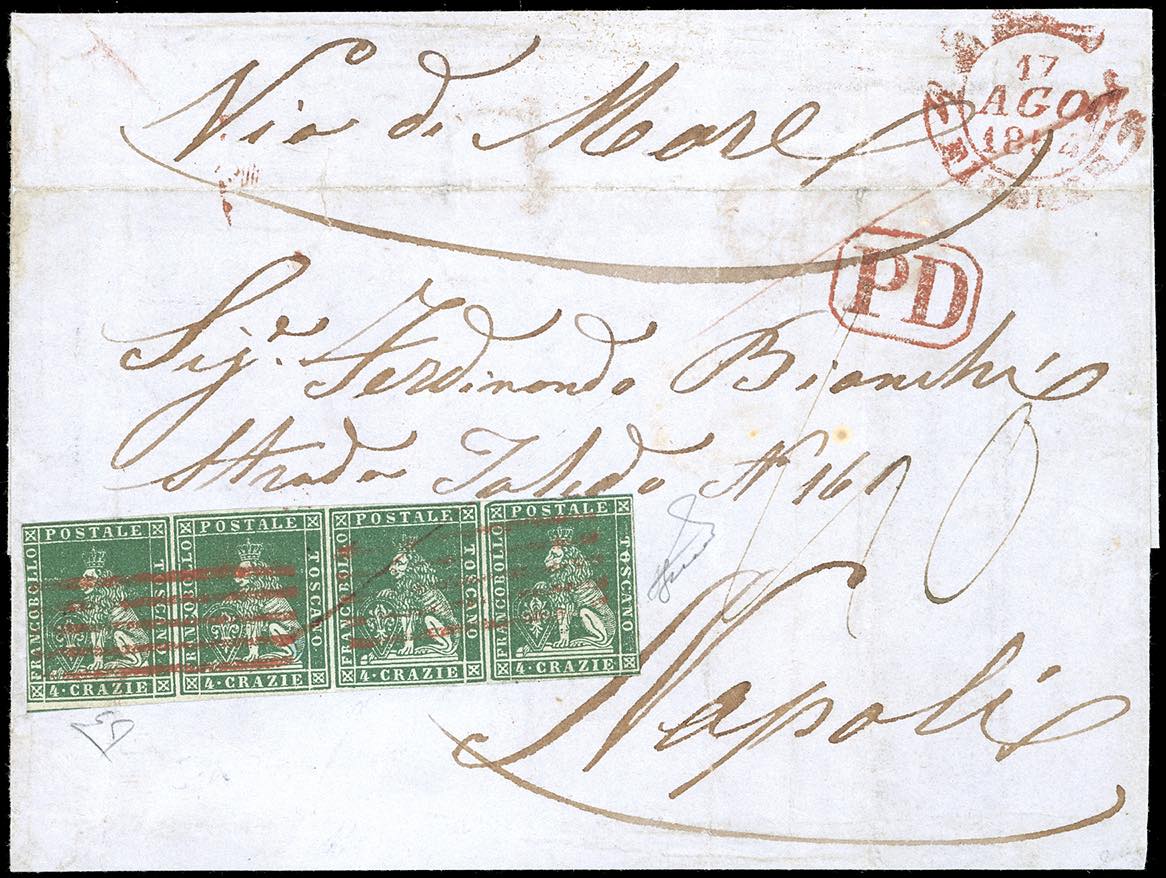 Via di Mare
17
AGO
185
PD
Sigr. Ferdinando Bianchi
Strada Toledo No 160
Napoli
FRANCOBOLLO POSTALE TOSCANO
4·CRAZIE
FRANCOBOLLO POSTALE TOSCANO
4·CRAZIE
FRANCOBOLLO POSTALE TOSCANO
4·CRAZIE
FRANCOBOLLO POSTALE TOSCANO
4·CRAZIE